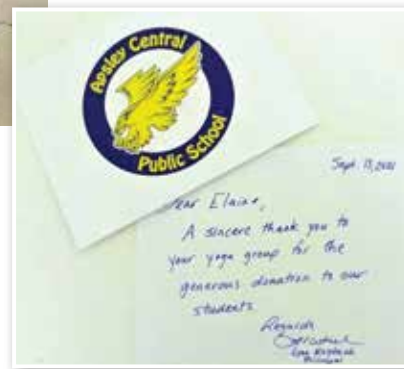 Apsley Central
Public School
Sept. 13,
Dear Elaine,
A sincere thank you to
your yoga group for the
generous donation to our
students
Regards
Principal